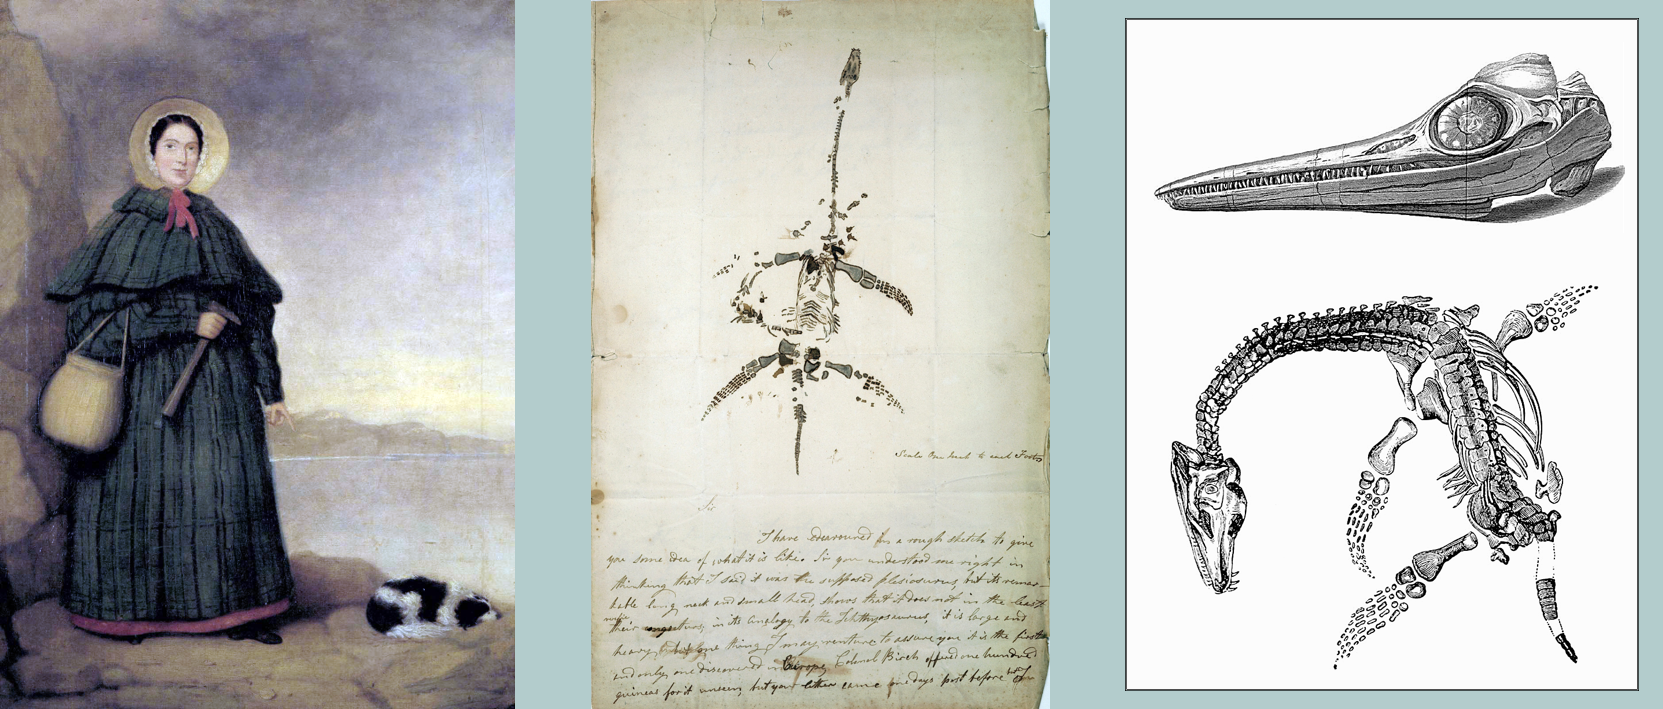 Scale one Inch to each Foot
Sir
I have endeavoured by a rough sketch to give
you some idea of what it is like. Sir you understood me right in
thinking that I said it was the supposed plesiosaurus, but its remar-
kable long neck and small head, shows that it does not in the least
verify
their conjectures, in its analogy to the Ichthyosaurus, it is large and
heavy but one thing I may venture to assure you it is the first
and only one discovered in Europe, Colonel Birch offered one hundred
guineas for it unseen, but your letter came one days post before